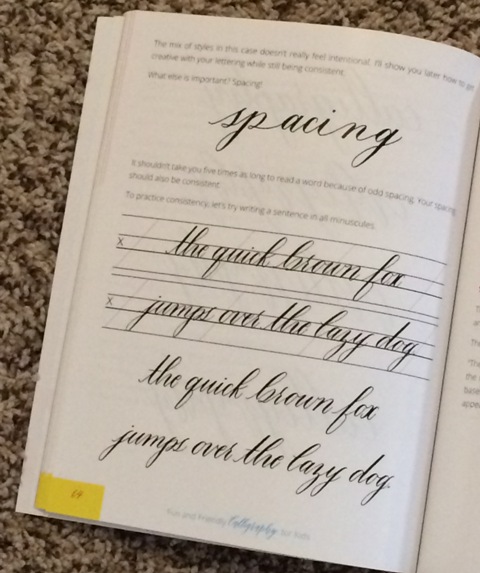 The mix of styles in this case doesn't really feel intentional. I'll show you later how to get
creative with your lettering while still being consistent.
What else is important? Spacing!
spacing
It shouldn't take you five times as long to read a word because of odd spacing. Your spacing
should also be consistent.
To practice consistency, let's try writing a sentence in all minuscules.
x the quick brown fox
x jumps over the lazy dog
the quick brown fox
jumps over the lazy dog
69
Fun and Friendly Calligraphy for Kids